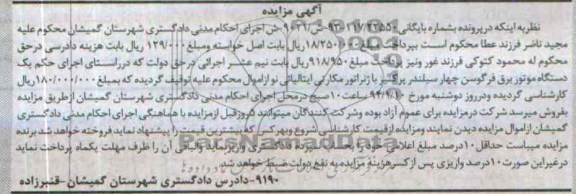 آگهی مزایده
نظر به اینکه در پرونده بشماره بایگانی ش اجرای احکام مدنی دادگستری شهرستان گمیشان محکوم علیه
مجید ناصر فرزند عطا محکوم است بپرداخت مبلغ ریال بابت اصل خواسته ومبلغ ۱۲۹/۰۰۰ ریال بابت هزینه دادرسی درحق
محکوم له محمود کتوکی فرزند غور ونیز پرداخت مبلغ ۹۱۸/۹۵۰ ریال بابت نیم عشر اجرائی درحق دولت که درراستای اجرای حکم یک
دستگاه موتور برق فرگوسن چهار سیلندر پرکینز با ژنراتور مکارپی ایتالیائی نو ازاموال محکوم علیه توقیف گردیده که بمبلغ ۱۸۰/۰۰۰/۰۰۰ ریال
کارشناسی گردیده ودرروز دوشنبه مورخ ۹۴/۹/۱۰ ساعت ۱۰ صبح درمحل اجرای احکام مدنی دادگستری شهرستان گمیشان ازطریق مزایده
بفروش میرسد شرکت درمزایده برای عموم آزاد بوده وشرکت کنندگان میتوانند ۵روز قبل ازمزایده با هماهنگی اجرای احکام مدنی دادگستری
گمیشان ازاموال مزایده دیدن نمایند ومزایده ازقیمت کارشناسی شروع وبهرکس که بیشترین قیمت را پیشنهاد نماید فروخته خواهد شد برنده
مزایده میبایست حداقل ۱۰درصد مبلغ دادگستری واریز ومابقی آن را ظرف مهلت یکماه پرداخت نماید
درغیراین صورت ۱۰درصد واریزی پس از کسر هزینه مزایده به نفع دولت ضبط خواهد شد.
۹۱۹۰-دادرس دادگستری شهرستان گمیشان-قنبرزاده